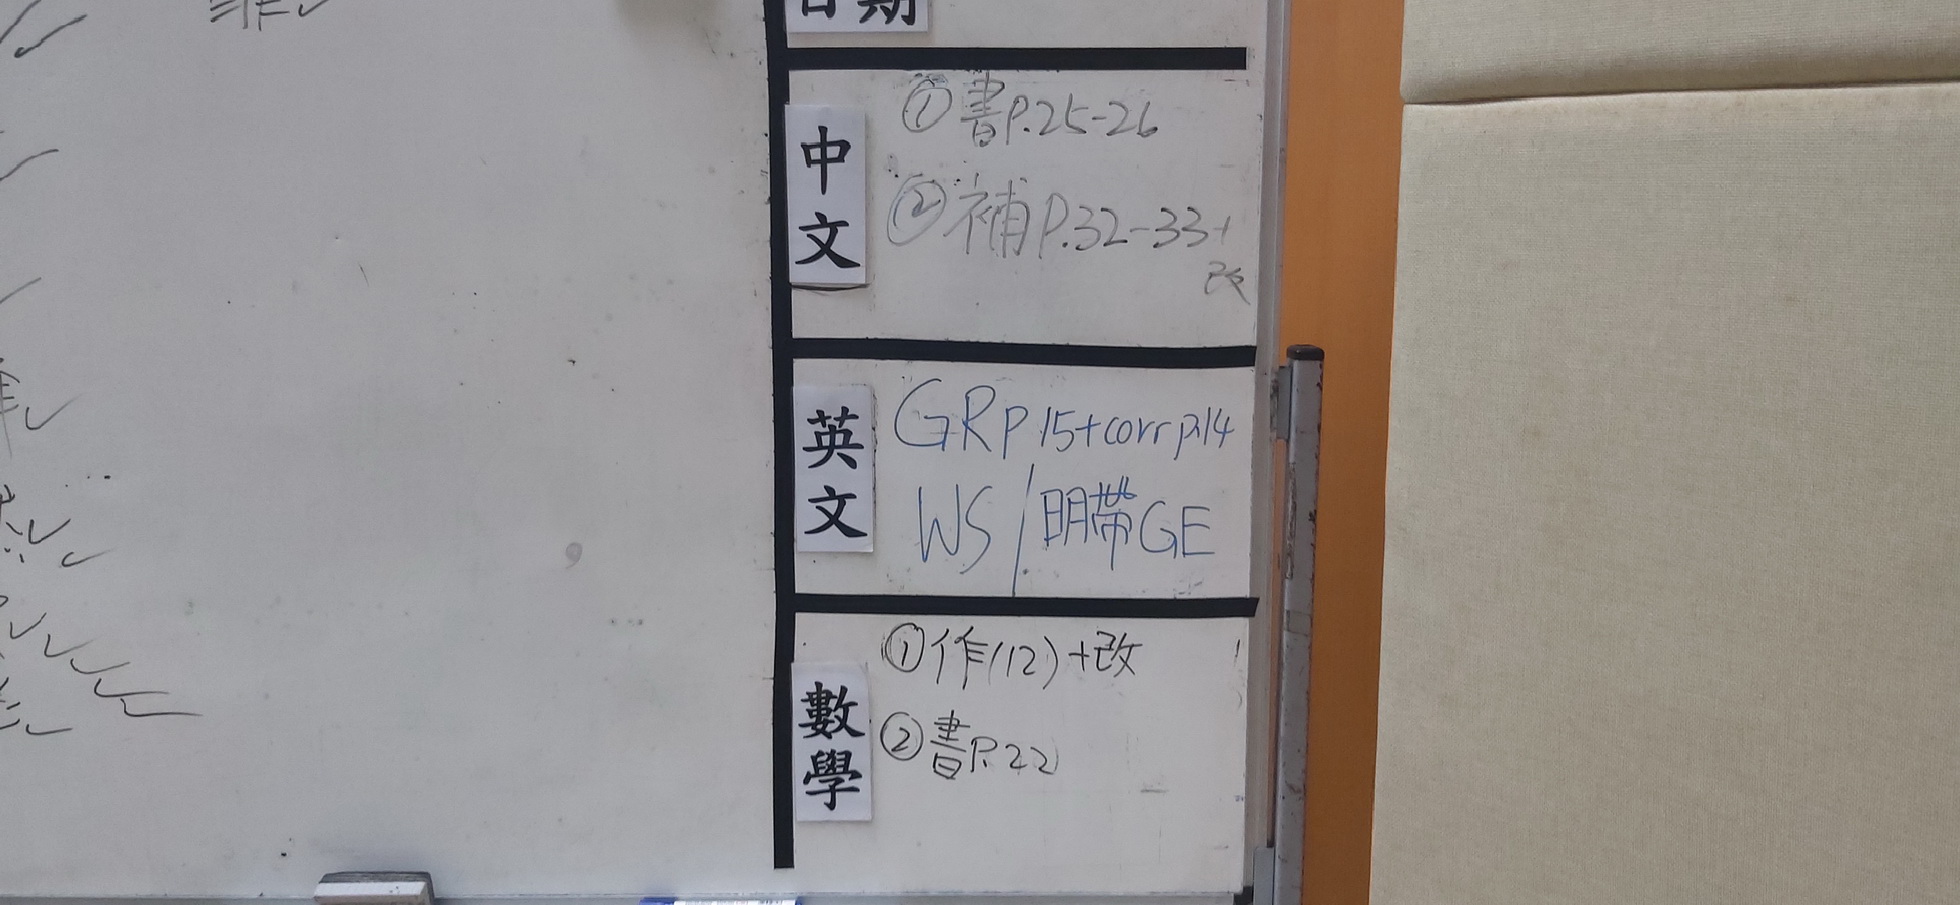 日期
中文
①書P.25-26
②補P.32-33+
改
英文
GRp15+corrp.14
WS/明帶GE
數學
①作(12)+改
②書P.22